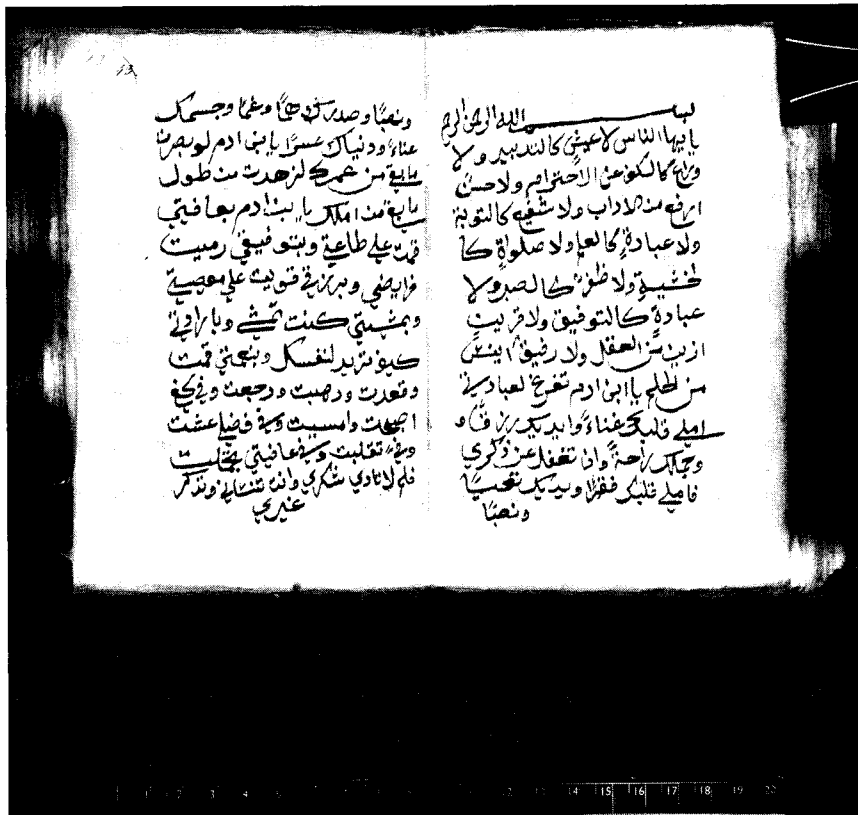 بسم الله الرحمن الرحيم
يا يها الناس لا عيش كالتدبير ولا
ورع كالكف عن الاحترام ولا حسن
ارفع من الاداب ولا شفيع كالتوبة
ولا عبادةٍ كالعلم ولا صلواة كا
لخشيةٍ ولا ظفر كالصبر ولا
عبادةٍ كالتوفيق ولا قرين
ازين من العقل ولا رفيق ايس
من الحلم يا ابن ادم تفرغ لعبادتي
املي قلبك غناءً وايديك رزقًا و
وجسدك راحةً واذا تغفل عن ذكري
فاملي قلبك فقرًا وبديك تعبًا
ونصبًا
ونصبًا وصدرك همًا وغمًا وجسمك
عناءً ودنياك عسرًا يا بنى ادم لو بصرت
مابقي من عمرك لزهدت من طول
مابقي من املك يا بن ادم بعافيتي
قمت على طاعتي وبتوفيقي رميت
فرايضي وبرزقي قويت على معصيتي
وبمشيتي كنت تمشي وبارادتي
كيف تريد لنفسك وبنعمتي قمت
وقعدت وذهبت ورجعت وفي كنفي
اصبحت وامسيت وفي فضلي عشت
وفي تقلبت وفي عافيتي تجملت
فلم لا تادي شكري وانت تنساني وتذكر
غيري
13 14 15 16 17 18 19 20